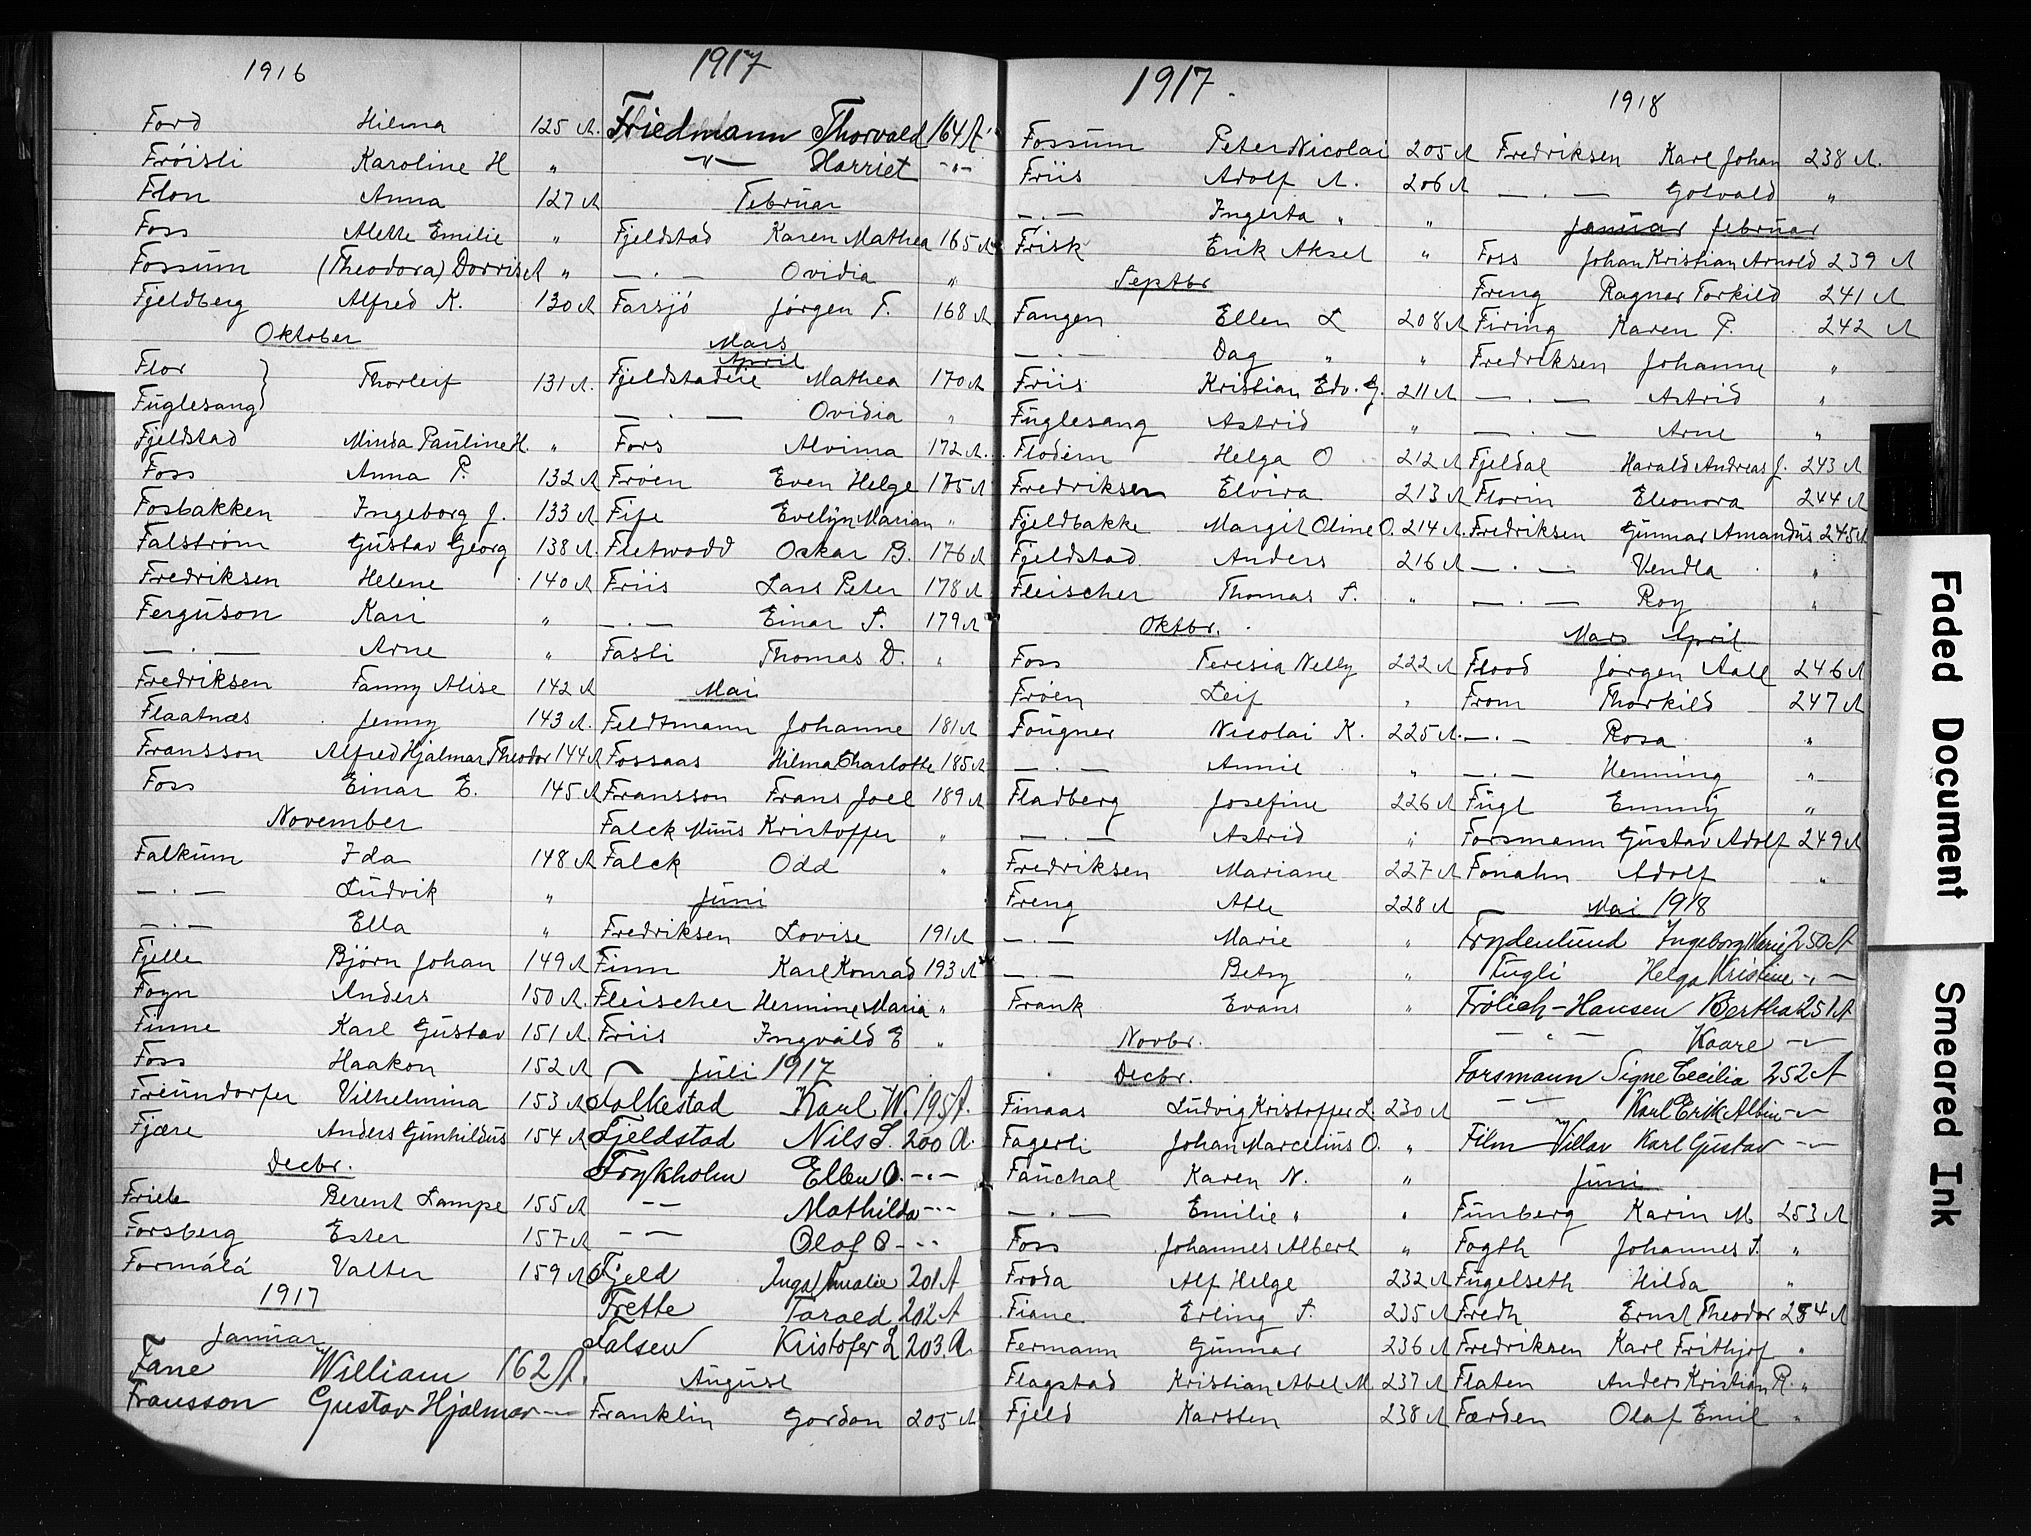 1916
Ford Hilma 125 A.
Frøisli Karoline H "
Flon Anna 127 A
Foss Alette Emilie "
Fossum (Theodora) Dorris A "
Fjeldberg Alfred K. 130 A
Oktober
Flor
Fuglesang } Thorleif 131 A.
Fjeldstad Minda Pauline H. "
Foss Anna P. 132 A
Fosbakken Ingeborg J. 133 A
Falstrøm Gustav Georg 138 A.
Fredriksen Helene 140 A
Ferguson Kari "
— . — Arne "
Fredriksen Fanny Alise 142 A
Flaatnæs Jenny 143 A.
Fransson Alfred Hjalmar Theodor 144 A
Foss Einar E. 145 A
November
Falkum Ida 148 A
— . — Ludvik "
— . — Ella "
Fjelle Bjørn Johan 149 A
Foyn Anders 150 A.
Finne Karl Gustav 151 A.
Foss Haakon 152 A
Freundorfer Vilhelmina 153 A
Fjære Anders Gunhildus 154 A
Decbr.
Friele Berent Lampe 155 A
Forsberg Ester 157 A
Formálá Valter 159 A
1917
Januar
Fane William 162 A.
Fransson Gustav Hjalmar —
1917
Friedmann Thorvald 164 A
— " — Harriet - " -
Februar
Fjeldstad Karen Mathea 165 A
— . — Ovidia "
Farsjö Jørgen F. 168 A
Mars
April
Fjeldstadeie Mathea 170 A
— . — Ovidia "
Fors Alvima 172 A.
Frøen Even Helge 175 A
Fife Evelyn Marian "
Fletwodd Oskar B. 176 A
Friis Lars Peter 178 A
— . — Einar S. 179 A
Fasli Thomas D. "
Mai
Feldtmann Johanne 181 A
Fossaas Hilma Charlotte 185 A
Fransson Frans Joel 189 A
Falck Muus Kristoffer "
Falck Odd "
Juni
Fredriksen Lovise 191 A
Finn Karl Konrad 193 A
Fleischer Hermine Maria "
Friis Ingvald E "
Juli 1917
Falkestad Karl W. 195 A.
Fjeldstad Nils S. 200 A.
Frykholm Ellen O. - " -
— — Mathilda - " -
— — Olaf O - " -
Fjeld Inga Amalie 201 A
Frette Tarald 202 A
Falsen Kristofer L 203 A.
August
Franklin Gordon 205 A
1917.
Fossum Peter Nicolai 205 A
Friis Adolf A. 206 A
— . — Ingerta " "
Frisk Erik Aksel "
Septbr
Fangen Ellen L 208 A
— . — Dag " "
Friis Kristian Edv. G. 211 A
Fuglesang Astrid "
Flodem Helga O 212 A
Fredriksen Elvira 213 A
Fjeldbakke Margit Oline O. 214 A.
Fjeldstad Anders 216 A
Fleischer Thomas S. "
Oktbr.
Foss Teresia Nelly 222 A
Frøen Leif "
Fougner Nicolai K. 225 A.
— . — Annie "
Fladberg Josefine 226 A
— . — Astrid "
Fredriksen Mariane 227 A
Freng Atle 228 A
— . — Marie "
— . — Betsy "
Frank Evans "
Novbr.
Decbr.
Finaas Ludvig Kristoffer L. 230 A
Fagerli Johan Marcelius O. "
Fauchal Karen N. "
— . — Emilie " "
Foss Johannes Albert "
Froda Alf Helge 232 A
Fiane Erling S. 235 A
Fermann Gunnar 236 A
Flagstad Kristian Abel M. 237 A
Fjeld Karsten 238 A
1918
Fredriksen Karl Johan 238 A.
— . — Gotvald "
Januar februar
Foss Johan Kristian Arnold 239 A
Freng Ragnar Torkild 241 A
Firing Karen P. 242 A
Fredriksen Johanne "
— . — Astrid "
— . — Arne "
Fjeldal Harald Andreas J. 243 A
Florin Eleonora 244 A
Fredriksen Gunnar Amandus 245 A
— . — Vendla "
— . — Roy "
Mars April
Flood Jørgen Aall 246 A
From Thorkild 247 A
— . — Rosa "
— . — Henning "
Fugl Emmy "
Forsmann Gustav Adolf 249 A
Fonahn Adolf "
Mai 1918
Frydenlund Ingeborg Marie 250 A
Fugli Helga Kristine - " -
Frölich-Hansen Bertha 251 A
— " — Kaare - " -
Forsmann Signe Cecilia 252 A
— " — Karl Erik Albin - " -
Film Villar Karl Gustav - " -
Juni
Funberg Karin M 253 A
Fogth Johannes S. "
Fugelseth Hilda "
Fredh Ernst Theodor 254 A
Fredriksen Karl Frithjof "
Flaten Anders Kristian R. "
Færden Olaf Emil "
Faded Document
Smeared Ink